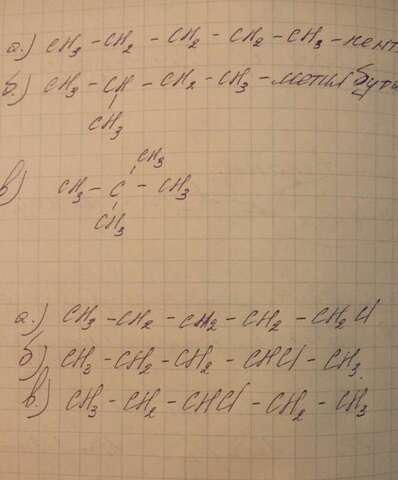 а.) CH3 - CH2 - CH2 - CH2 - CH3 - пент
б) CH3 - CH - CH2 - CH3 - метил бута
CH3
CH3
в) CH3 - C - CH3
CH3
а.) CH3 - CH2 - CH2 - CH2 - CH2Cl
б) CH3 - CH2 - CH2 - CHCl - CH3
в.) CH3 - CH2 - CHCl - CH2 - CH3